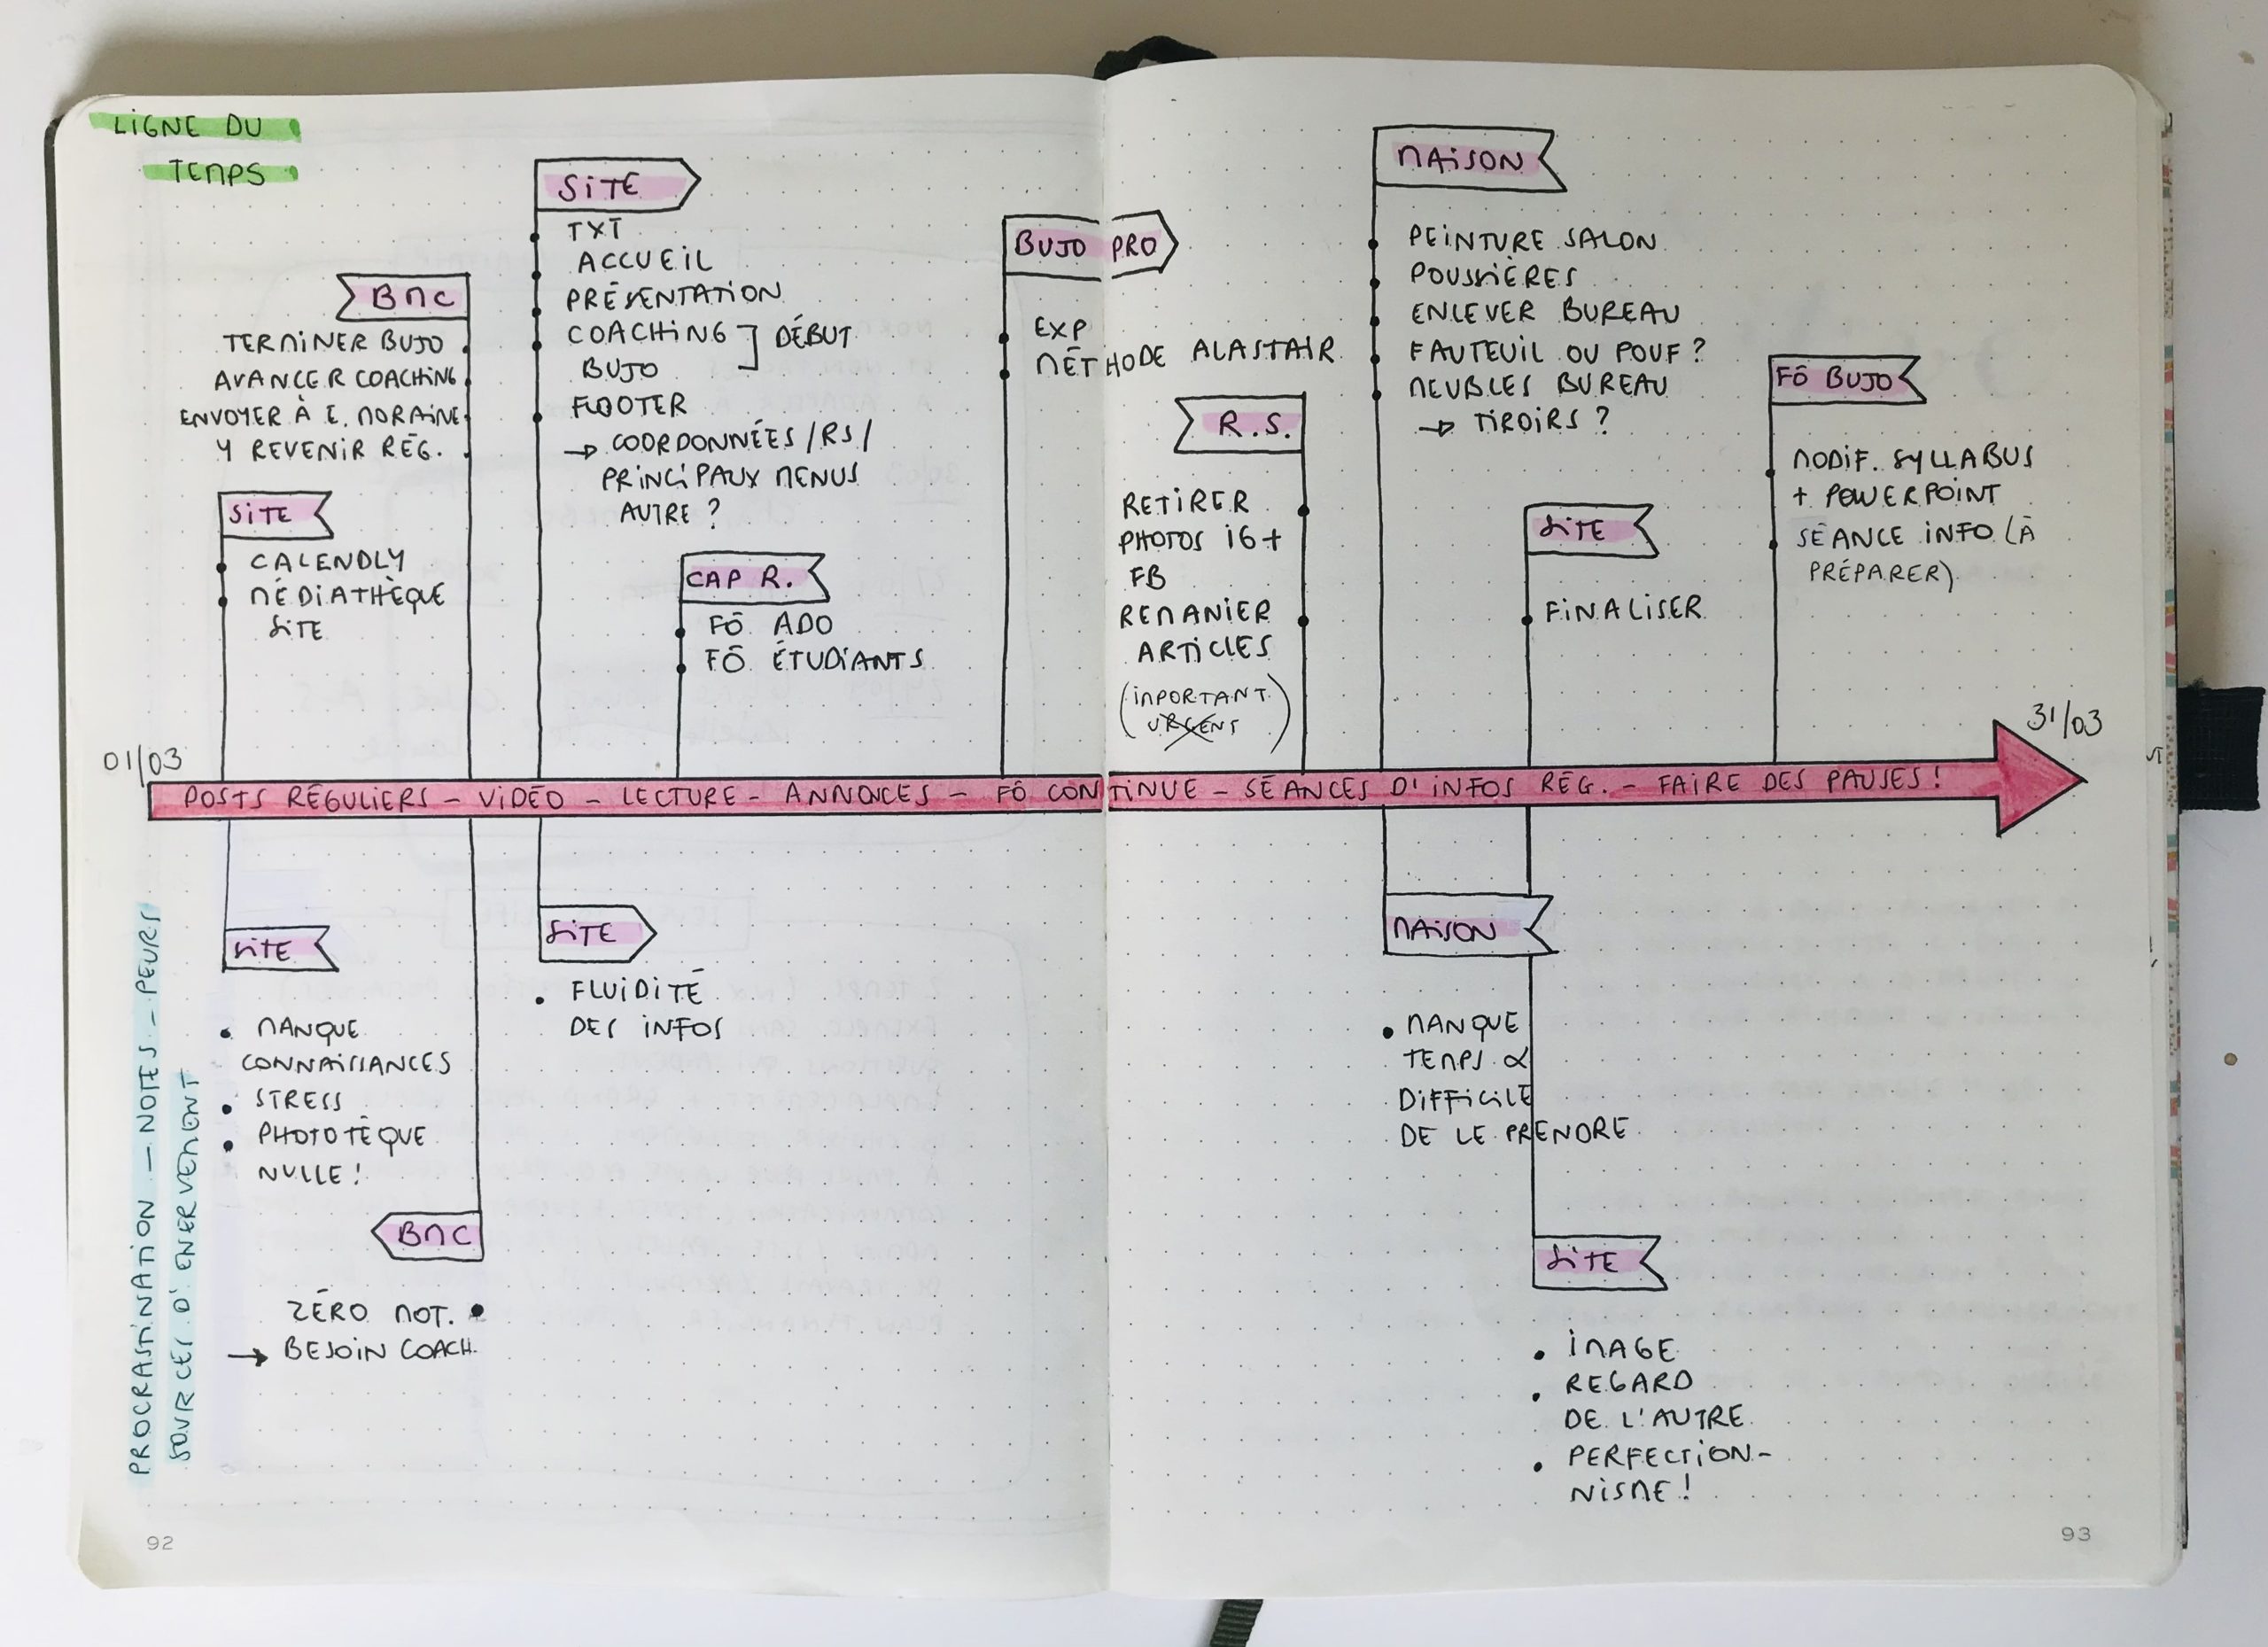 LIGNE DU
TEMPS
BMC
TERMINER BUJO
AVANCER COACHING
ENVOYER À E. MORAINE
Y REVENIR RÉG.
SITE
CALENDLY
MÉDIATHÈQUE
SITE
SITE
TXT
ACCUEIL
PRÉSENTATION
COACHING ] DÉBUT
BUJO
FOOTER
→ COORDONNÉES / RS /
PRINCIPAUX MENUS
AUTRE ?
CAP R.
FÔ ADO
FÔ ÉTUDIANTS
BUJO PRO
EXP
MÉTHODE ALASTAIR
R.S.
RETIRER
PHOTOS IG +
FB
REMANIER
ARTICLES
(IMPORTANT
URGENT)
MAISON
PEINTURE SALON
POUSSIÈRES
ENLEVER BUREAU
FAUTEUIL OU POUF ?
MEUBLES BUREAU
→ TIROIRS ?
SITE
FINALISER
FÔ BUJO
MODIF. SYLLABUS
+ POWERPOINT
SÉANCE INFO (À
PRÉPARER)
01/03
31/03
POSTS RÉGULIERS - VIDÉO - LECTURE - ANNONCES - FÔ CONTINUE - SÉANCES D'INFOS RÉG. - FAIRE DES PAUSES !
PROCRASTINATION - NOTES - PEURS
SOURCES D'ENERVEMENT
SITE
• MANQUE
CONNAISSANCES
• STRESS
• PHOTOTÈQUE
NULLE !
BMC
ZÉRO MOT. •
→ BESOIN COACH.
SITE
• FLUIDITÉ
DES INFOS
MAISON
• MANQUE
TEMPS &
DIFFICILE
DE LE PRENDRE
SITE
• IMAGE
• REGARD
DE L'AUTRE
• PERFECTION-
NISME !
92
93